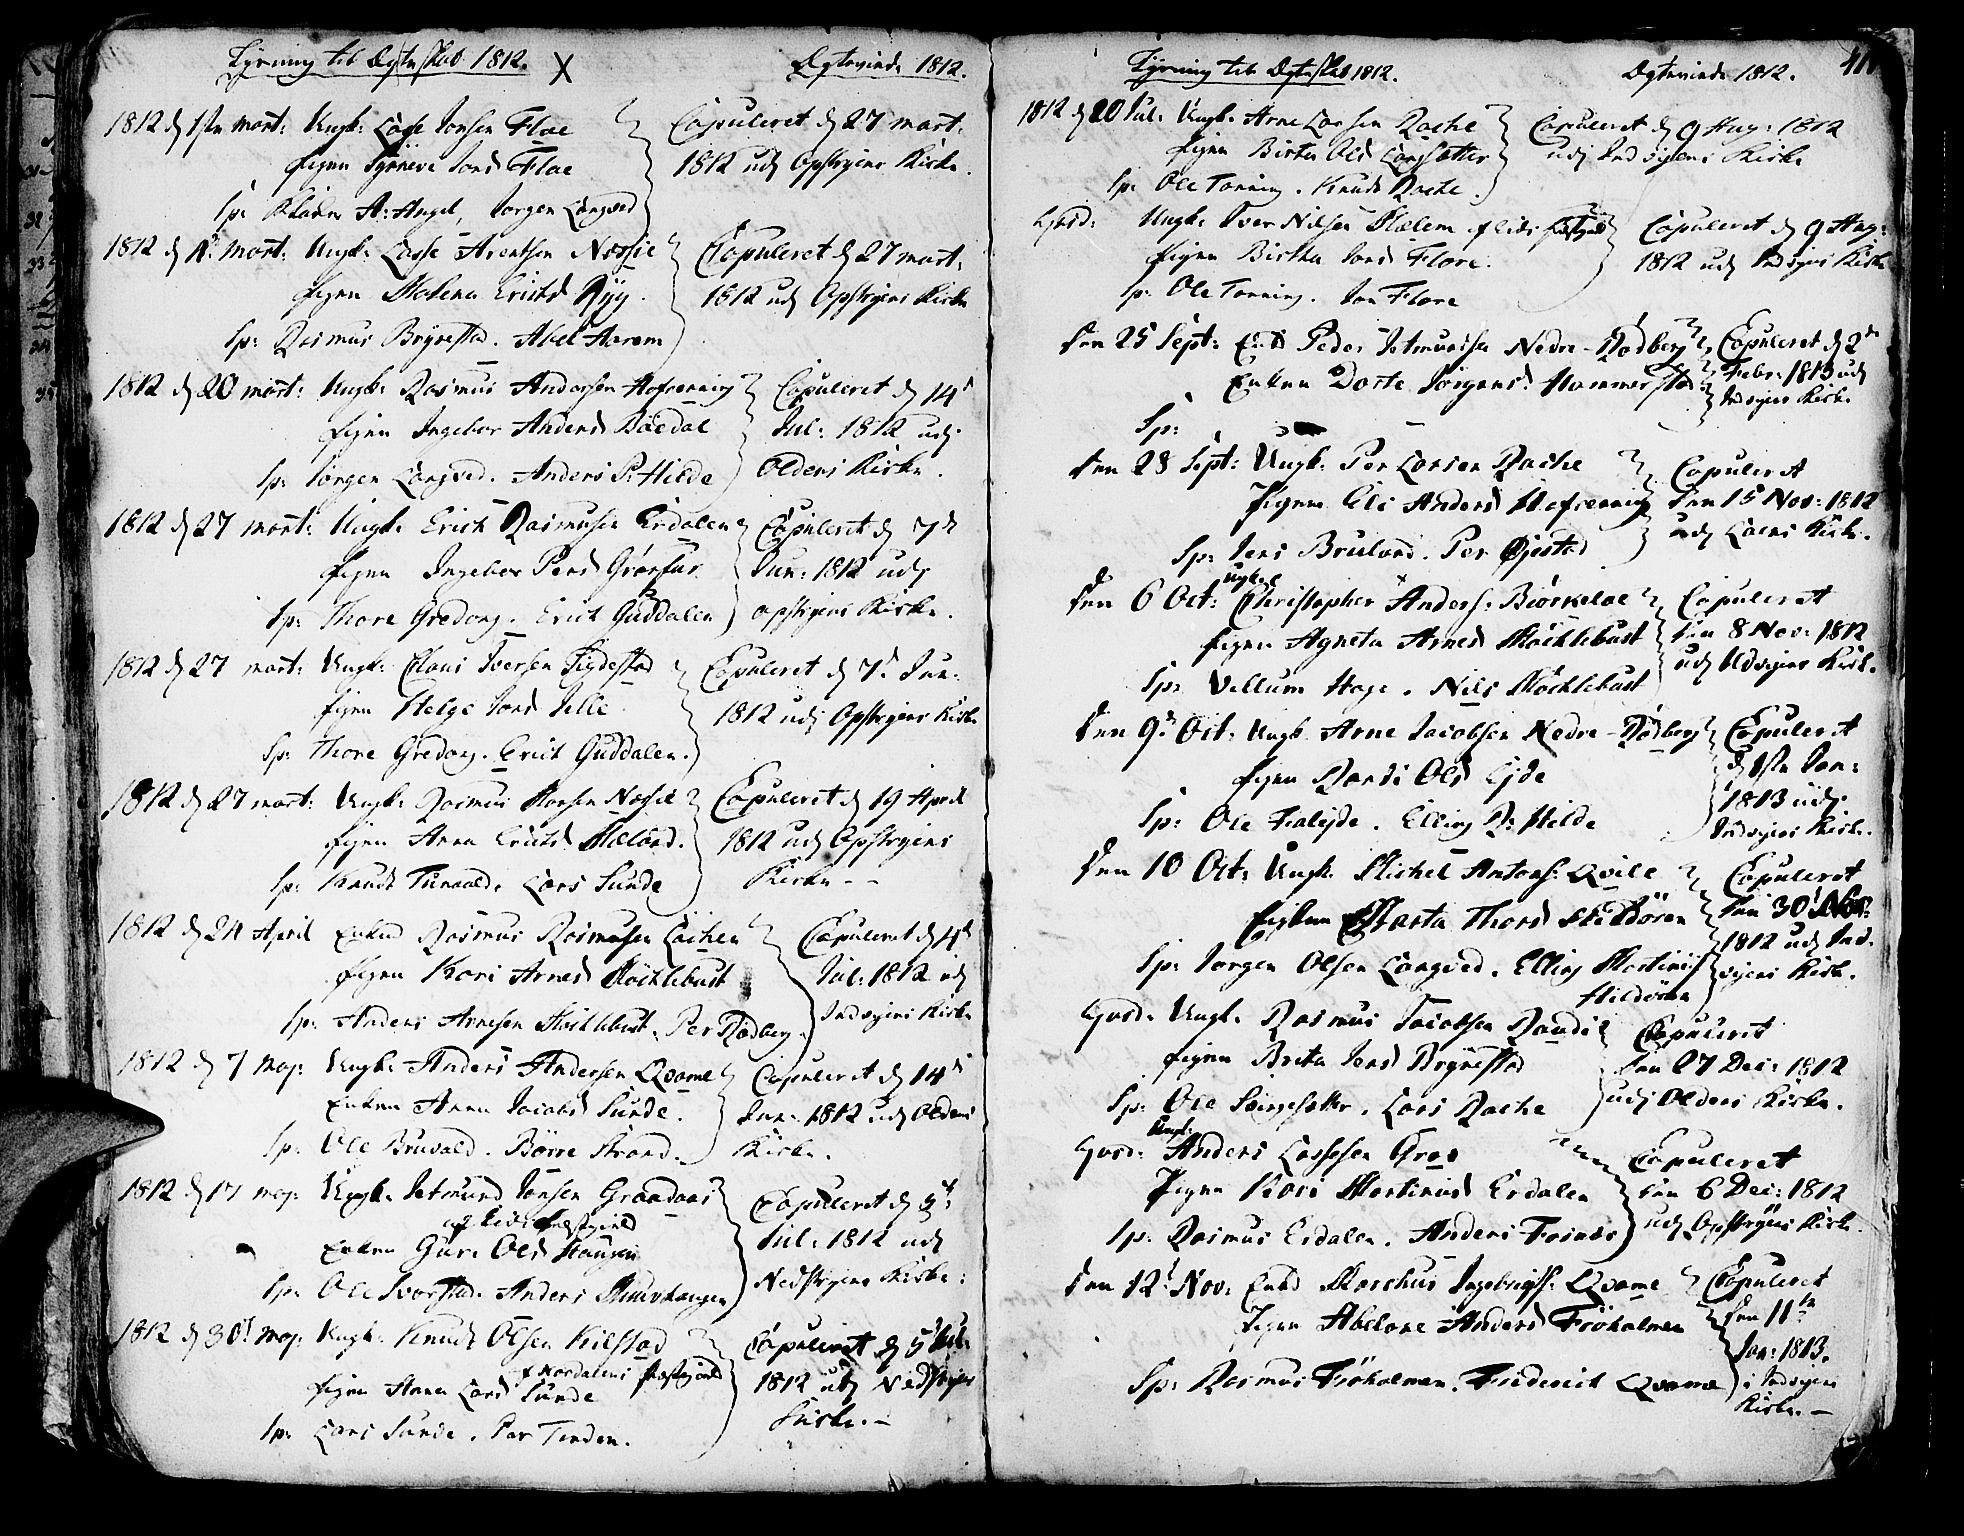 Lysning til Ægteskab 1812. X Ægteviede 1812.
1812 d 1ste Mart: Ungk: Lasse Jonsen Flae
Pigen Synneve Jons d Flae
Sp: A: Angel, Jørgen Langved
Copuleret d 27 Mart:
1812 udj Opstryens Kirke.
1812 d Mart: Ungk: Lasse Arentsen Nessie
Pigen Malena Erichs d Ryg.
Sp: Rasmus Bryrestad. Abel Aarem
Copuleret d 27 Mart:
1812 udj Opstryens Kirke
1812 d 20 Mart: Ungk: Rasmus Andersen Hofrenning
Pigen Ingebor Anders d Bøedal
Sp: Jørgen Langved. Anders P: Hilde
Copuleret d 14d
Jul: 1812 udj
Oldens Kirke.
1812 d 27 Mart: Ungk: Erich Rasmusen Erdalen
Pigen Ingebor Pers d Grøsfur
Sp: Thore Gredong. Erich Guddalen
Copuleret d 7de
Jun: 1812 udj
Opstryens Kirke.
1812 d 27 Mart: Ungk: Claus Iversen Tigdestad
Pigen Helge Jons d Jelle
Sp: Thore Gredong. Erich Guddalen.
Copuleret d 7d Jun:
1812 udj Opstryens Kirke
1812 d 27 Mart: Ungk: Rasmus Nessie
Pigen Anna Erichs d Mæland.
Sp: Knud Tunoald. Lars Sunde
Copuleret d 19 April
1812 udj Opstryens
Kirke - -
1812 d 24 April Enkm Rasmus Rasmusen Løchen
Pigen Kari Arnes d Møchlebust
Sp: Anders Arnesen Møchlebust. Per Rødberg.
Copuleret d 4d
Jul: 1812 udj
Indvigens Kirke
1812 d 7 Maj: Ungk: Anders Andersen Qvame
Enken Anna Jacobs d Sunde.
Sp: Ole Bruvald. Børre Strand.
Copuleret d 14d
Jun: 1812 udj Oldens
Kirke.
1812 d 17 Maj: Ungk: Jetmund Jonsen Graadaas
af Eids Præstegield
Enken Guri Ols d Haugen
Sp: Ole Svorstad. Anders Muurhaugen
Copuleret d 5d
Jul: 1812 udj
Nedstryens Kirke:
1812 d 30d Maj: Ungk: Knud Olsen Kilstad
f Nordalens Præstegield
Pigen Anna Lars d Sunde
Sp: Lars Sunde. Per Tenden.
Copuleret d 5d Jul:
1812 udj Nedstryens
Kirke. -
Lysning til Ægteskab 1812. Ægteviede 1812.
1812 d 20 Jul: Ungk: Arne Larsen Rache
Pigen Birthe Ols d Langsætter
Sp: Ole Tonning. Knud Rache.
Copuleret d 9 Aug: 1812
udj Indvigens Kirke
Ejusd: Ungk: Iver Nilsen Mælem af Eids Præstegield
Pigen Birtha Jons d Flore.
Sp: Ole Tonning. Jon Flore
Copuleret d 9 Aug:
1812 udj Indvigens Kirke
Den 25 Sept: Enkm Peder Jetmundsen Nedre-Rødberg
Enken Dorte Jørgens d Hammerstad
Sp:
Copuleret d 2de
Febr: 1813 udj
Indvigens Kirke
Den 28 Sept: Ungk: Per Larsen Rache
Pigen Eli Anders d Hofrenning
Sp: Jens Bruland. Per Øjestad
Copuleret
Den 15 Nov: 1812
udj Loens Kirke.
Den 6 Oct: Ungk: Christopher Anders: Biørkeloe
Pigen Agneta Arnes d Møchlebust
Sp: Vellum Hage. Nils Møchlebust
Copuleret
Den 8 Nov: 1812
udj Udvigens Kirke.
Den 9d Oct: Ungk: Arne Jacobsen Nedre-Rødberg
Pigen Randi Ols d Ejde
Sp: Ole Fralejde. Elling R: Hilde
Copuleret
d 1ste Jan:
1813 udj
Indvigens Kirke.
Den 10 Oct: Ungk: Michel Antons: Qvile
Pigen Marta Thors d Skildøren
Sp: Jørgen Olsen Langved. Elling Martinus
Hildøren
Copuleret
Den 30 Nov:
1812 udj Ind-
vigens Kirke.
Ejusd: Ungk: Rasmus Jacobsen Raudi
Pigen Brita Jens d Bryrestad
Sp: Ole Sørgesætter. Lars Rache
Copuleret
Den 27 Dec: 1812
udj Oldens Kirke.
Ejusd: Ungk: Anders Lassesen Groe
Pigen Kari Martinus d Erdalen
Sp: Rasmus Erdalen. Anders Fosnæs
Copuleret
Den 6 Dec: 1812
udj Opstryens Kirke.
Den 12d Nov: Enkm Marchus Ingebrigts: Qvame
Pigen Abelone Anders d Frøholmen
Sp: Rasmus Frøholmen. Friderich Qvame
Copuleret
Den 11te
Jan: 1813.
i Indvigens
Kirke. -